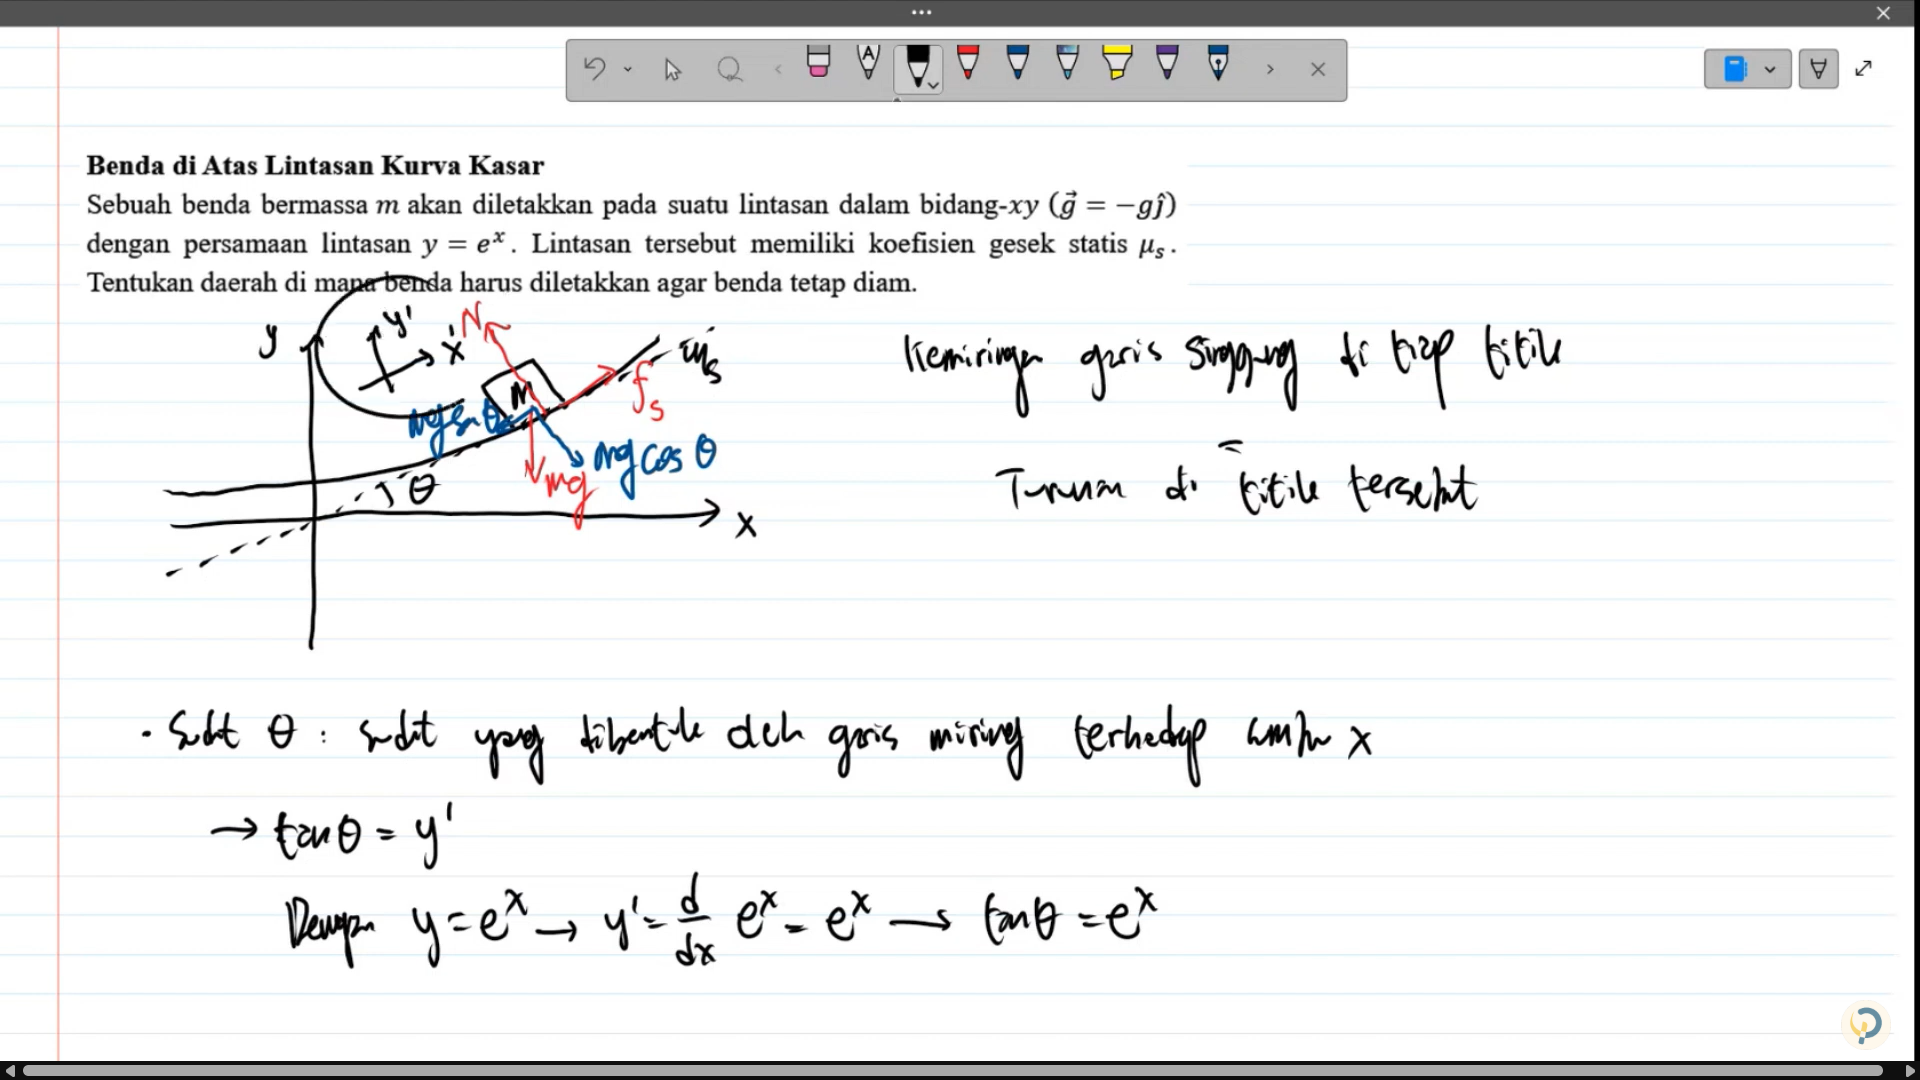 Benda di Atas Lintasan Kurva Kasar
Sebuah benda bermassa m akan diletakkan pada suatu lintasan dalam bidang-xy (g⃗ = −gĵ)
dengan persamaan lintasan y = eˣ. Lintasan tersebut memiliki koefisien gesek statis μₛ.
Tentukan daerah di mana benda harus diletakkan agar benda tetap diam.
y
y'
x'
N
m
fₛ
mg sin θ
mg cos θ
mg
θ
x
Kemiringan garis singgung di tiap titik
=
Turunan di titik tersebut
• Sudut θ : sudut yang dibentuk oleh garis miring terhadap sumbu x
→ tan θ = y'
Dengan y = eˣ → y' = d/dx eˣ = eˣ → tan θ = eˣ